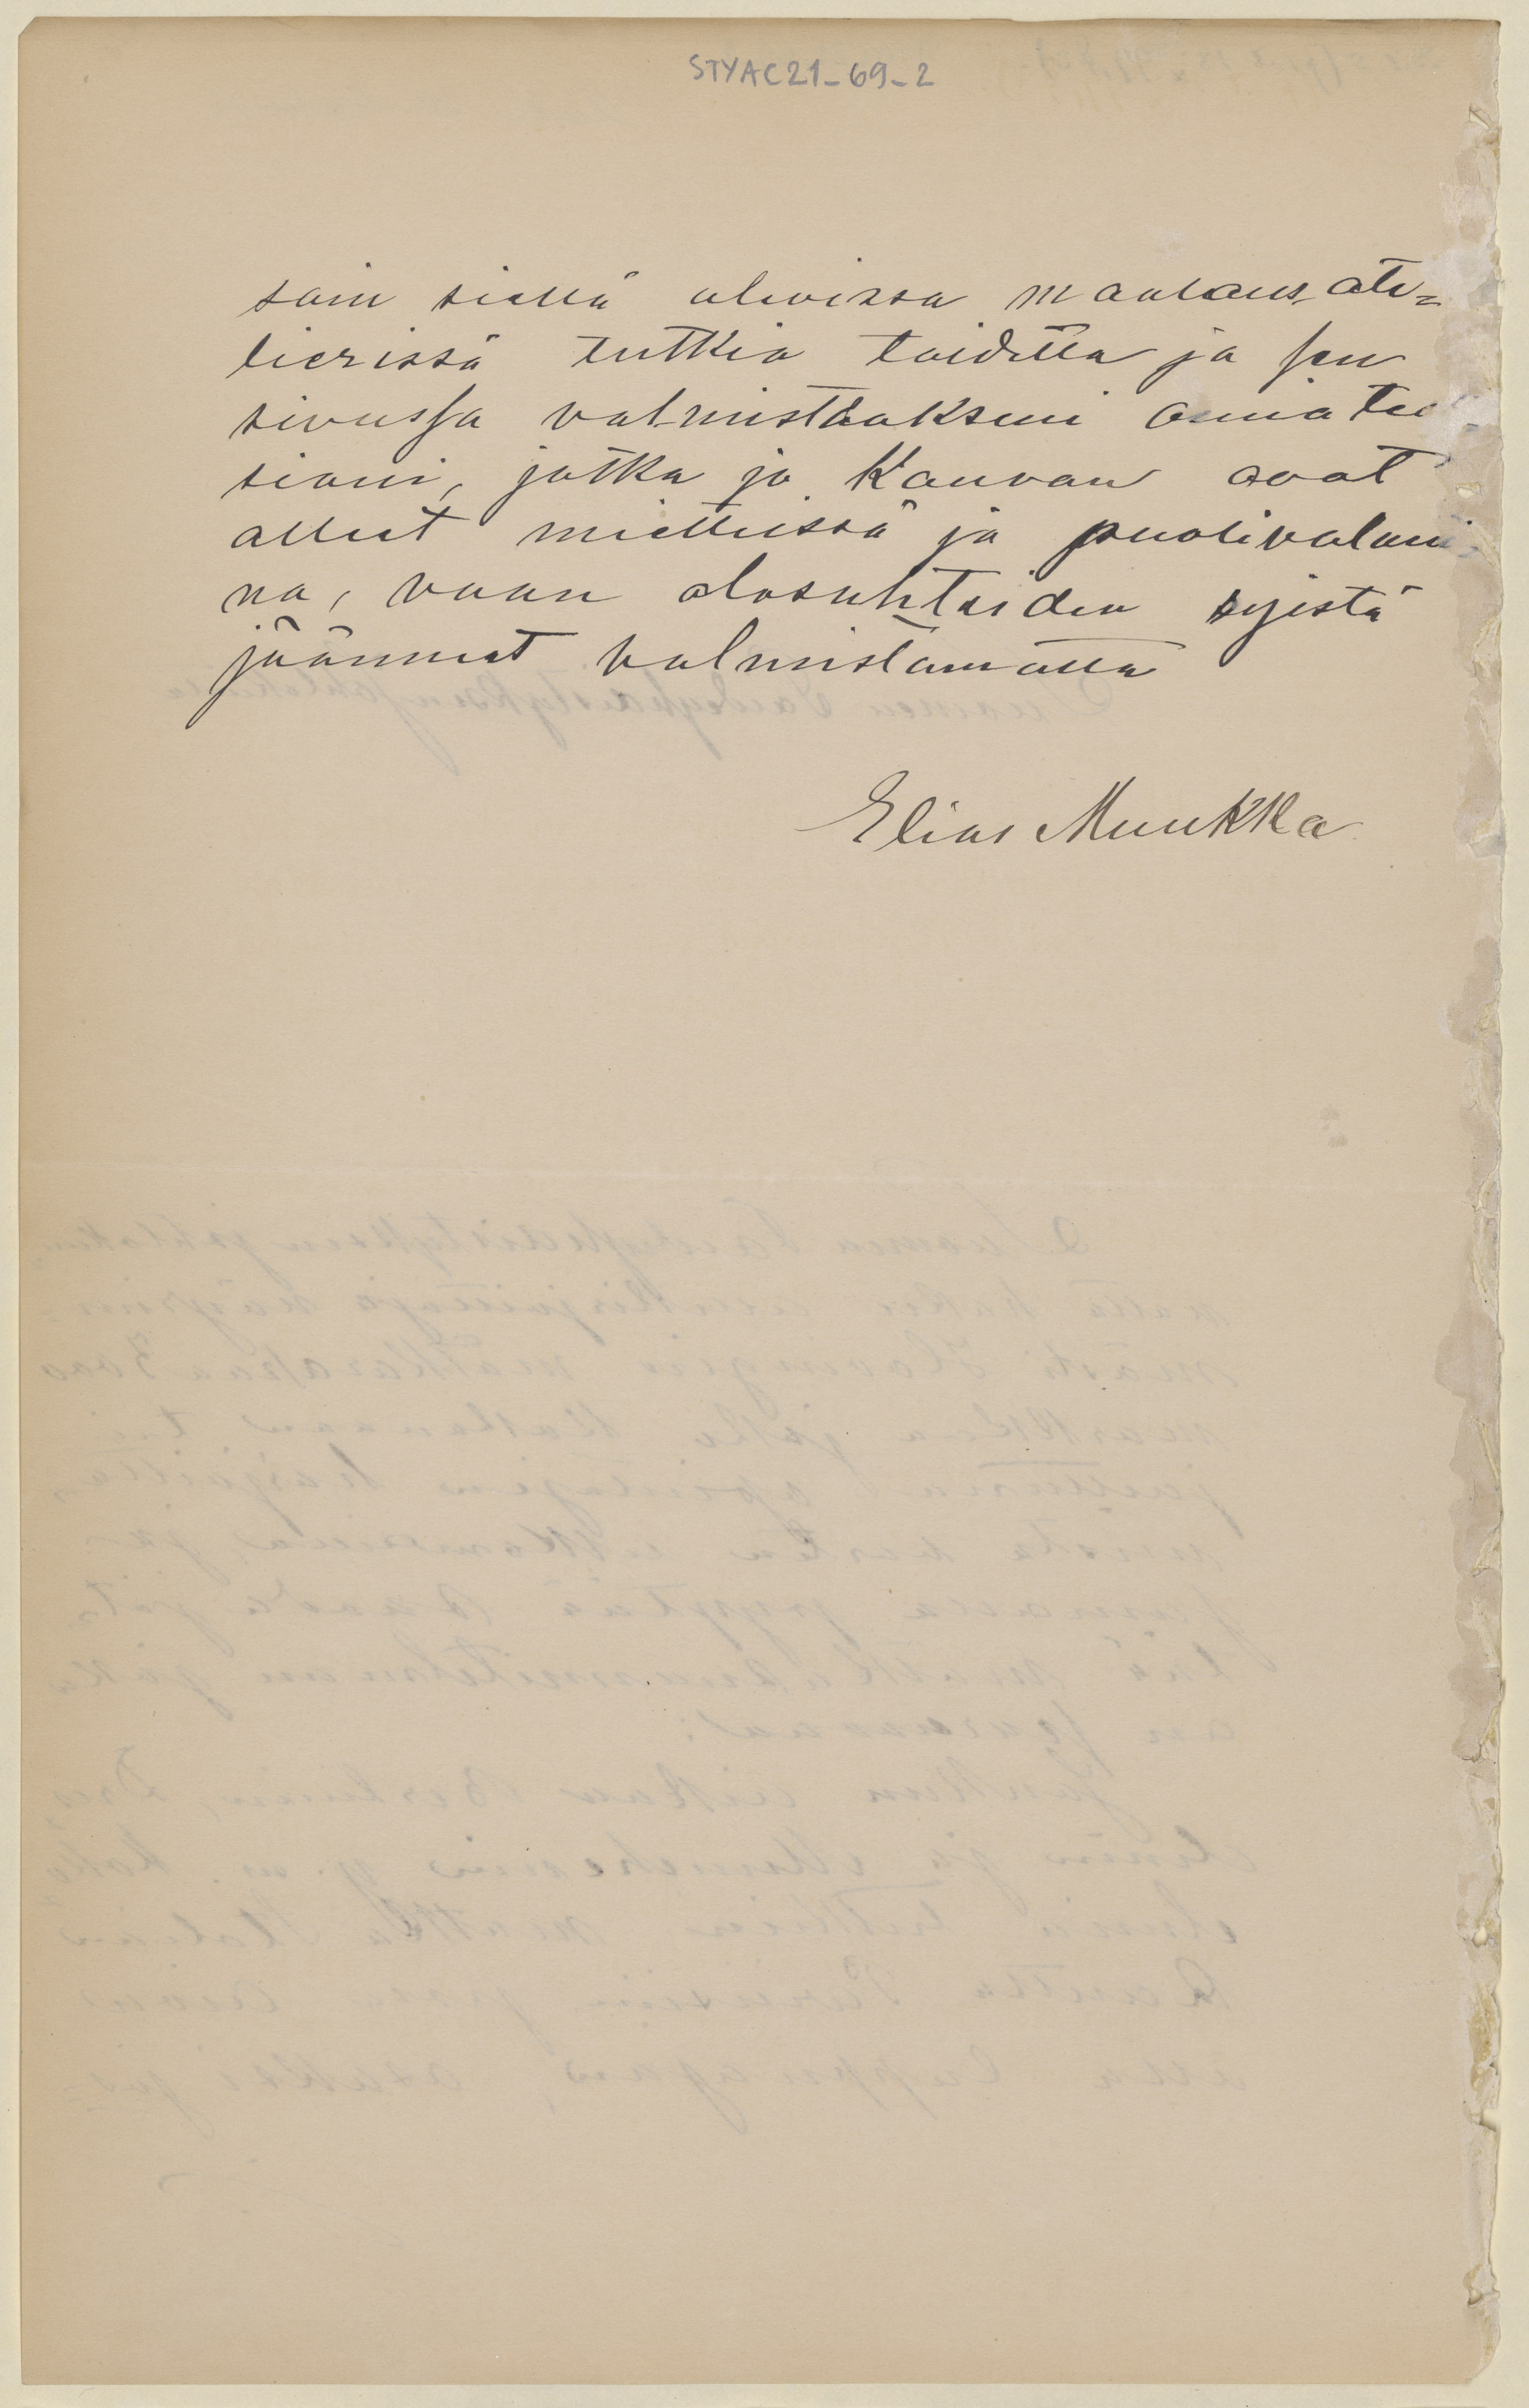 STYAC21-69-2
sain siellä olevissa maalaus ate=
lierissä tutkia taidetta ja sen
sivussa valmistaakseni omia teo
siani, jotka jo kauvan ovat
olleet mietteissä ja puolivalmii
na, vaan olosuhteiden syistä
jäänneet valmistamatta
Elias Muukka